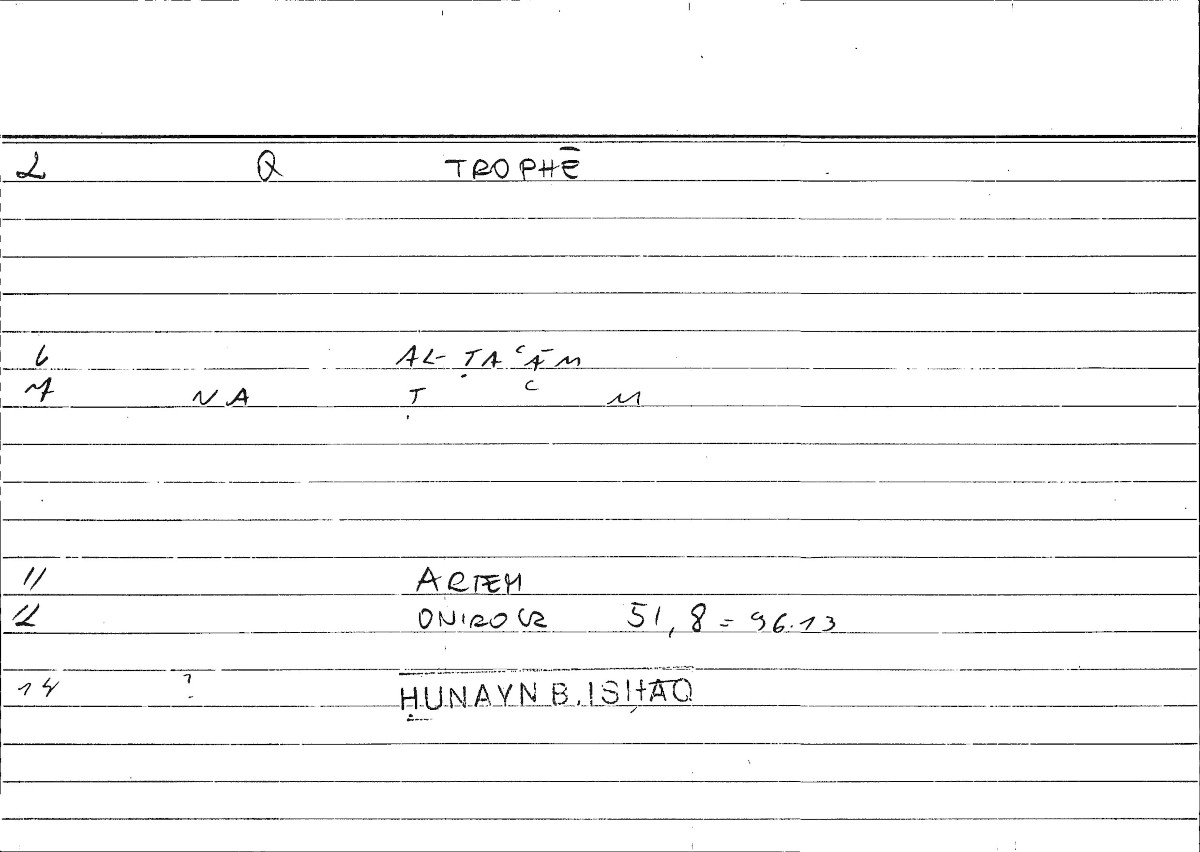 2 Q TROPHĒ
6 AL-ṬAʿĀM
7 NA Ṭ ʿ M
11 ARTEM
12 ONIROCR 51,8 = 96.13
14 ? ḤUNAYN B. ISḤĀQ